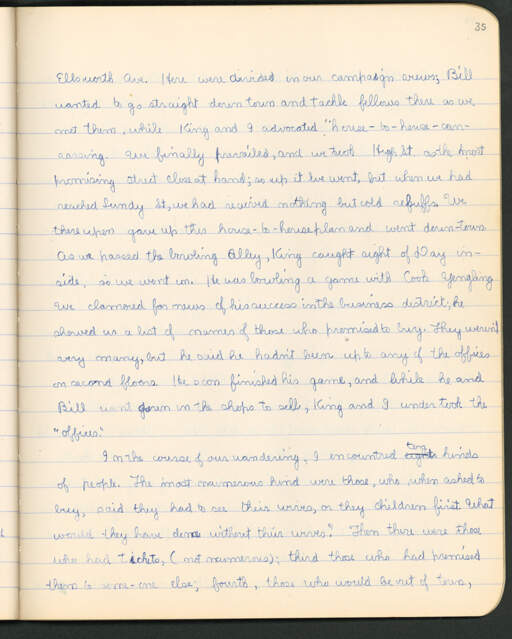 35
Ellsworth Ave. Here were divided in our campaign views; Bill
wanted to go straight down town and tackle fellows there as we
met them, while King and I advocated "house-to-house-can-
vassing. We finally prevailed, and we took High St. as the most
promising street close at hand; so up it we went, but when we had
reached Lundy St, we had received nothing but cold rebuffs. We
thereupon gave up this house-to-house plan and went down-town
As we passed the bowling alley, King caught sight of Day in-
side, so we went in. He was bowling a game with Cook Yengling
We clamored for news of his success in the business district; he
showed us a list of names of those who promised to buy. They weren't
very many, but he said he hadn't been up to any of the offices
on second floors. He soon finished his game, and while he and
Bill went down in the shops to sell, King and I undertook the
"offices."
In the course of our wandering, I encountred eight ten kinds
of people. The most numerous kind were those, who, when asked to
buy, said they had to see their wives, or they children first. What
would they have done without their wives? Then there were those
who had tickets, (not numerous); third those who had promised
them to some-one else; fourth, those who would be out of town,